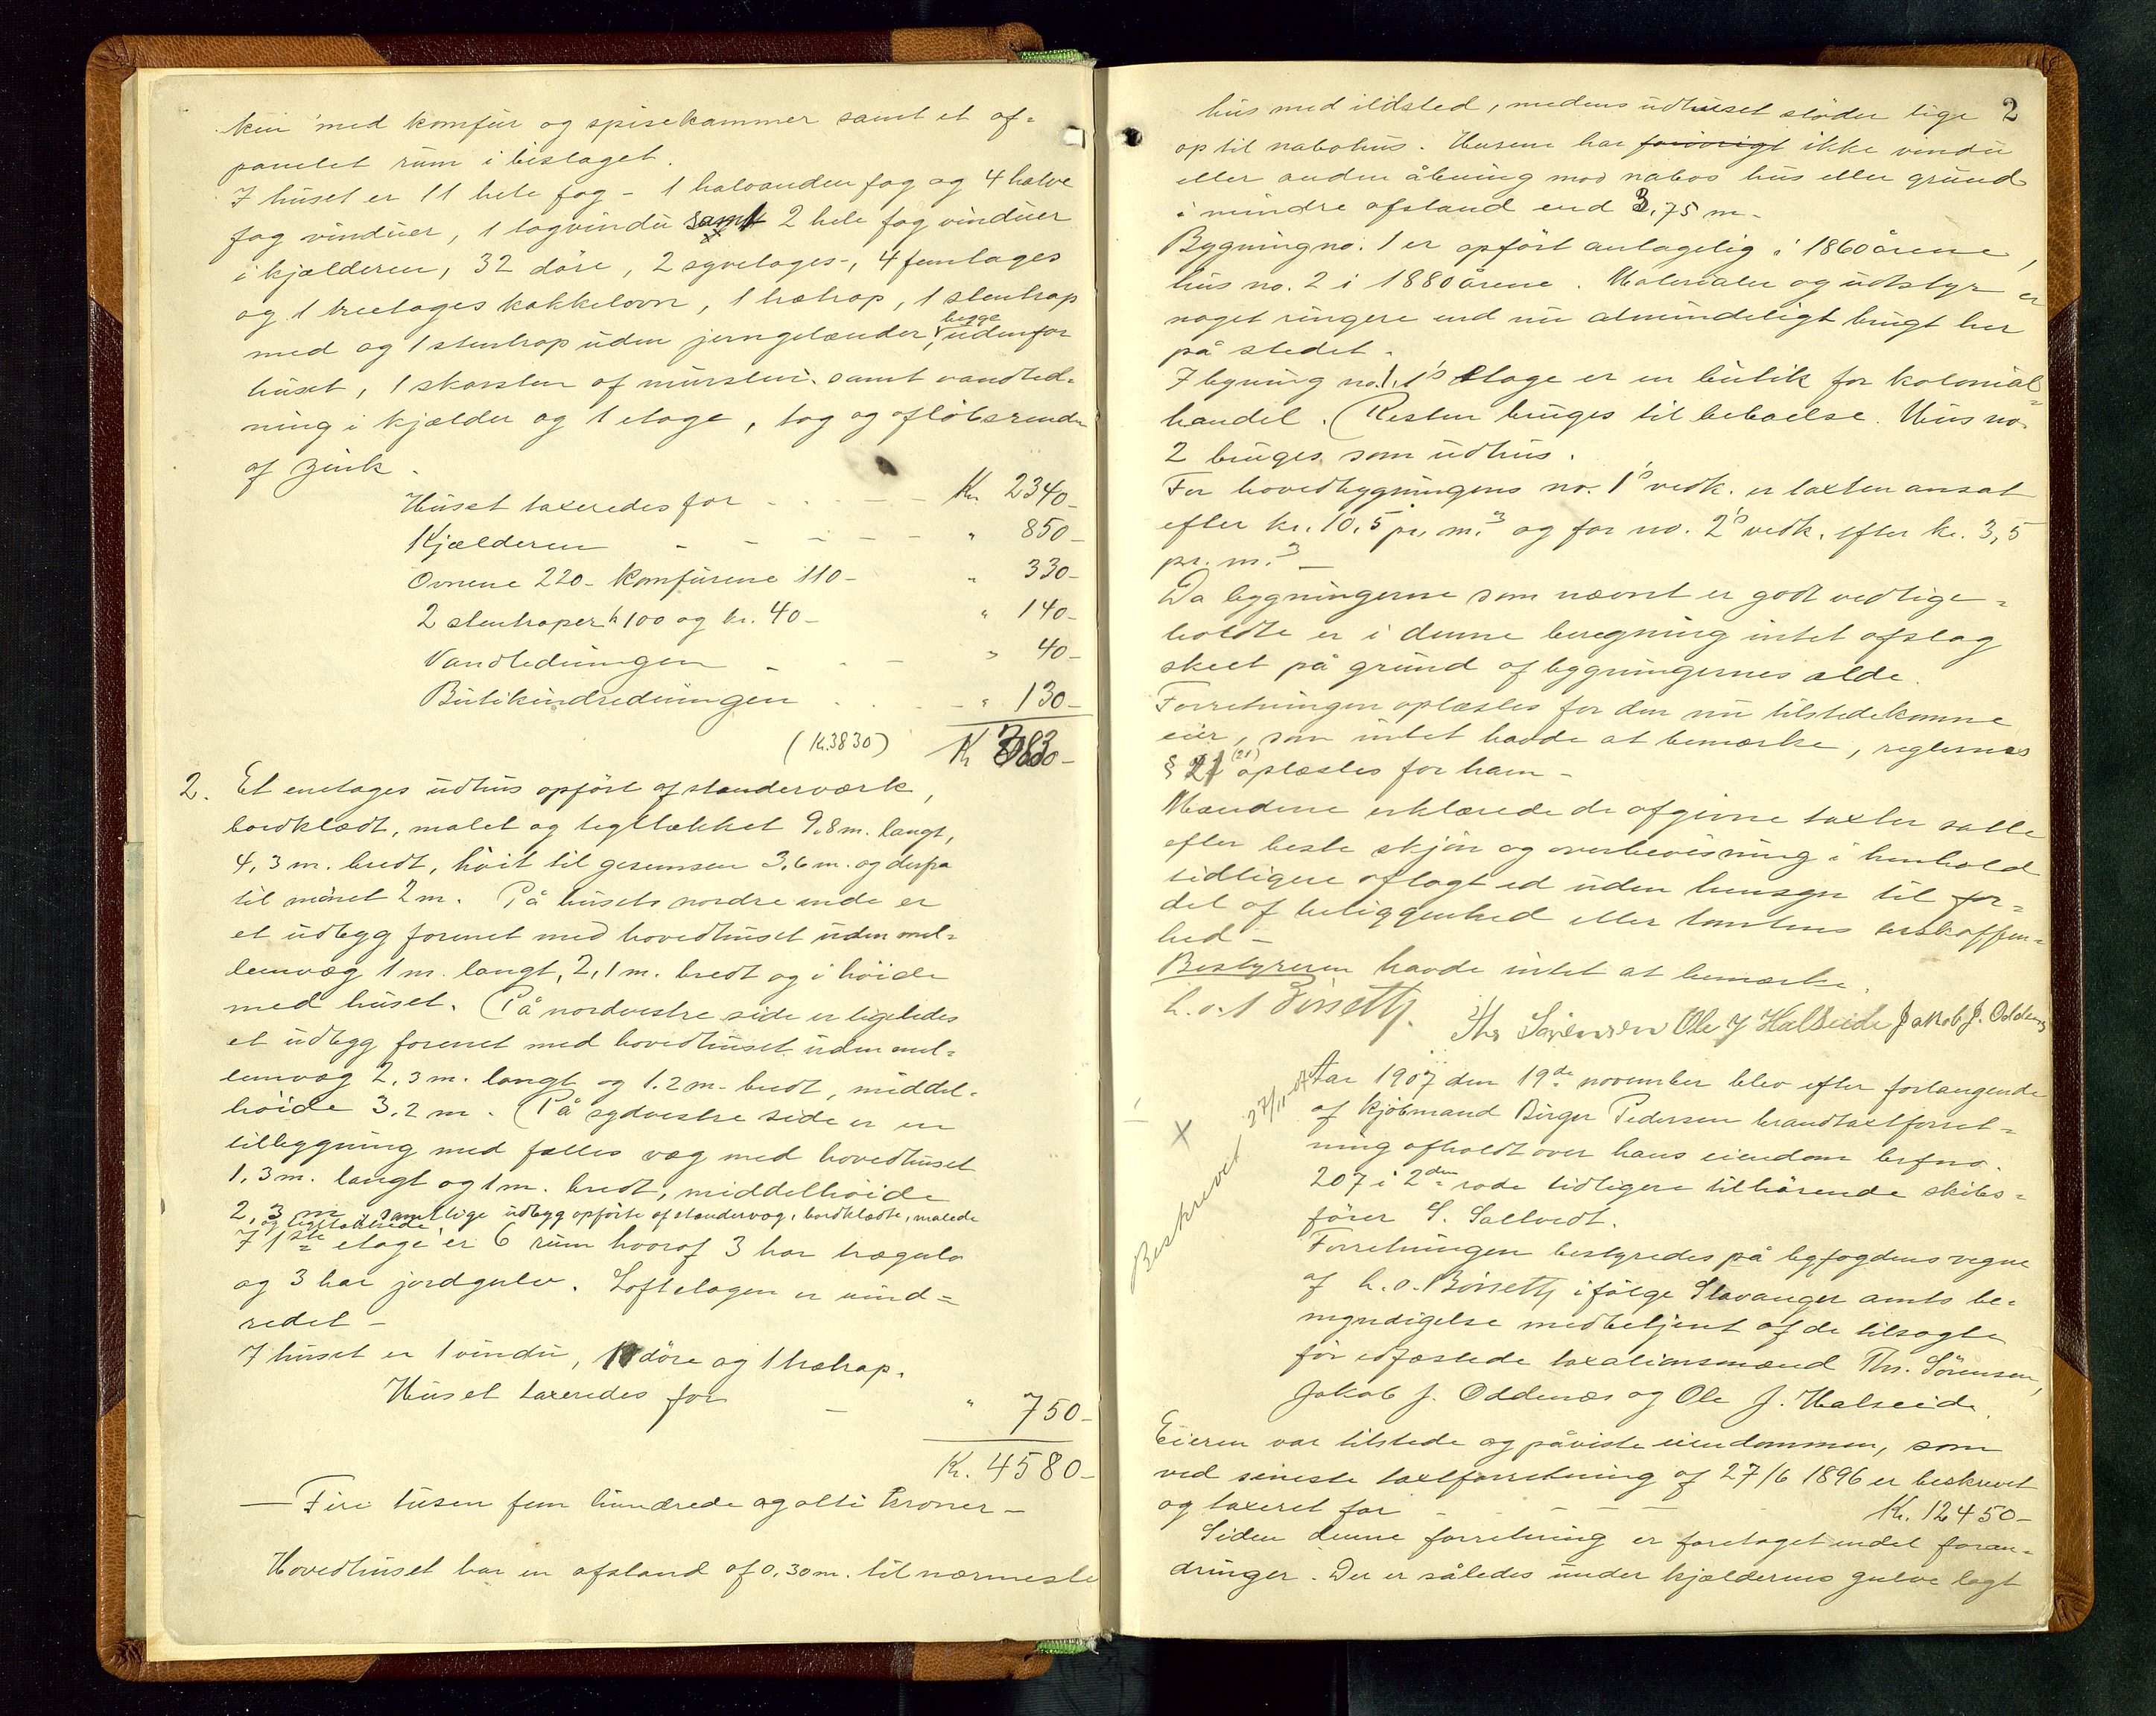 kin med komfür og spisekammer samt et af=
panelet rüm i bislaget.
I hüset er 11 hele fag - 1 halvanden fag og 4 halve
fag vindüer, 1 tagvindü samt 2 hele fag vindüer
i kjælderen, 32 döre, 2 syvetages-, 4 femtages
og 1 treetages kakkelovn, 1 trætrap, 1 stentrap
med og 1 stentrap üden jerngelænder, begge üdenfor
hüset, 1 skorsten af mürsten samt vandled=
ning i kjælder og 1 etage, tag og aflöbsrender
af zink.
Hüset taxeredes for - - - - Kr. 2340-
Kjælderen - - - - - " 850-
Ovnene 220- Komfürene 110- " 330-
2 stentraper kr 100 og kr. 40- " 140-
Vandledningen - - - " 40-
Bütikindredningen . . . - " 130-
(Kr. 3830) Kr 3830-
2. Et enetages üdhüs opfört af standerværk,
bordklædt, malet og tegltækket 9.8 m. langt,
4,3 m. bredt, höit til gesemsen 3,6 m. og derfra
til mönet 2 m. På hüsets nordre ende er
et üdbygg forenet med hovedhüset üden mel=
lemvæg 1 m. langt, 2,1 m. bredt og i höide
med hüset. På nordvestre side er ligeledes
et üdbygg forenet med hovedhüset üden mel=
lemvæg 2,3 m. langt og 1.2 m. bredt, middel=
höide 3.2 m. På sydvestre side er en
tilbygning med fælles væg med hovedhüset
1,3 m. langt og 1 m. bredt, middelhöide
2,3 m. samtlige üdbyg opförte af standervæg, bordklædte, malede
og tegltækkede.
I 1ste etage er 6 rüm hvoraf 3 har trægulv
og 3 har jordgulv. Loftetagen er üind=
redet -
I hüset er 1 vindü, 10 döre og 1 trætrap.
Hüset taxeredes for - " 750-
Kr. 4580-
— Fire tüsen fem hündrede og otti kroner —
Hovedhüset har en afstand af 0,30 m. til nærmeste
2
hüs med ildsted, medens üdhüset stöder lige
op til nabohüs. Husene har forövrigt ikke vindü
eller anden åbning mod nabos hüs eller gründ
i mindre afstand end 3,75 m.
Bygning no. 1 er opfört antagelig i 1860 årene,
hüs no. 2 i 1880 årene. Materialer og üdstyr er
noget ringere end nü almindeligt brügt her
på stedet.
I bygning no. 1.'s 1ste Etage er en bütik for kolonial=
handel. Resten brüges til beboelse. Hüs no.
2 brüges som üdhüs.
For hovedbygningens no. 1's vedk. er taxten ansat
efter kr. 10,5 pr. m.3 og for no. 2's vedk. efter kr. 3,5
pr. m.3 —
Da bygningerne som nævnt er godt vedlige=
holdte er i denne beregning intet afslag
skeet på gründ af bygningernes alde.
Forretningen oplæstes for den nü tilstedekomne
eier, som intet havde at bemærke, reglernes
§ 21 (21) oplæstes for ham -
Mændene erklærede de afgivne taxter satte
efter beste skjön og overbevisning i henhold
tidligere aflagt ed üden hensyn til for=
del af beliggenhed eller tomtens beskaffen=
hed -
Bestyreren havde intet at bemærke.
Ths Sørensen Ole J Halseide Jakob J. Oddenes
Beskrevet 27/11-07
+
Aar 1907 den 19de november blev efter forlangende
af kjöbmand Birger Pedersen brandtaxtforret=
ning afholdt over hans eiendom brfno.
207 i 2den rode tidligere tilhörende skibs=
förer S. Saltvedt.
Forretningen bestyredes på byfogdens vegne
af ifölge Stavanger amts be=
myndigelse med betjent af de tilsagte
för edfæstede taxationsmænd Ths. Sörensen,
Jakob J. Oddenæs og Ole J. Halseide.
Eieren var tilstede og påviste eiendommen, som
ved seneste taxtforretning af 27/6 1896 er beskrevet
og taxeret for - - - - Kr. 12450-
Siden denne forretning er foretaget endel foran=
dringer. Der er således ünder kjælderens gulve lagt